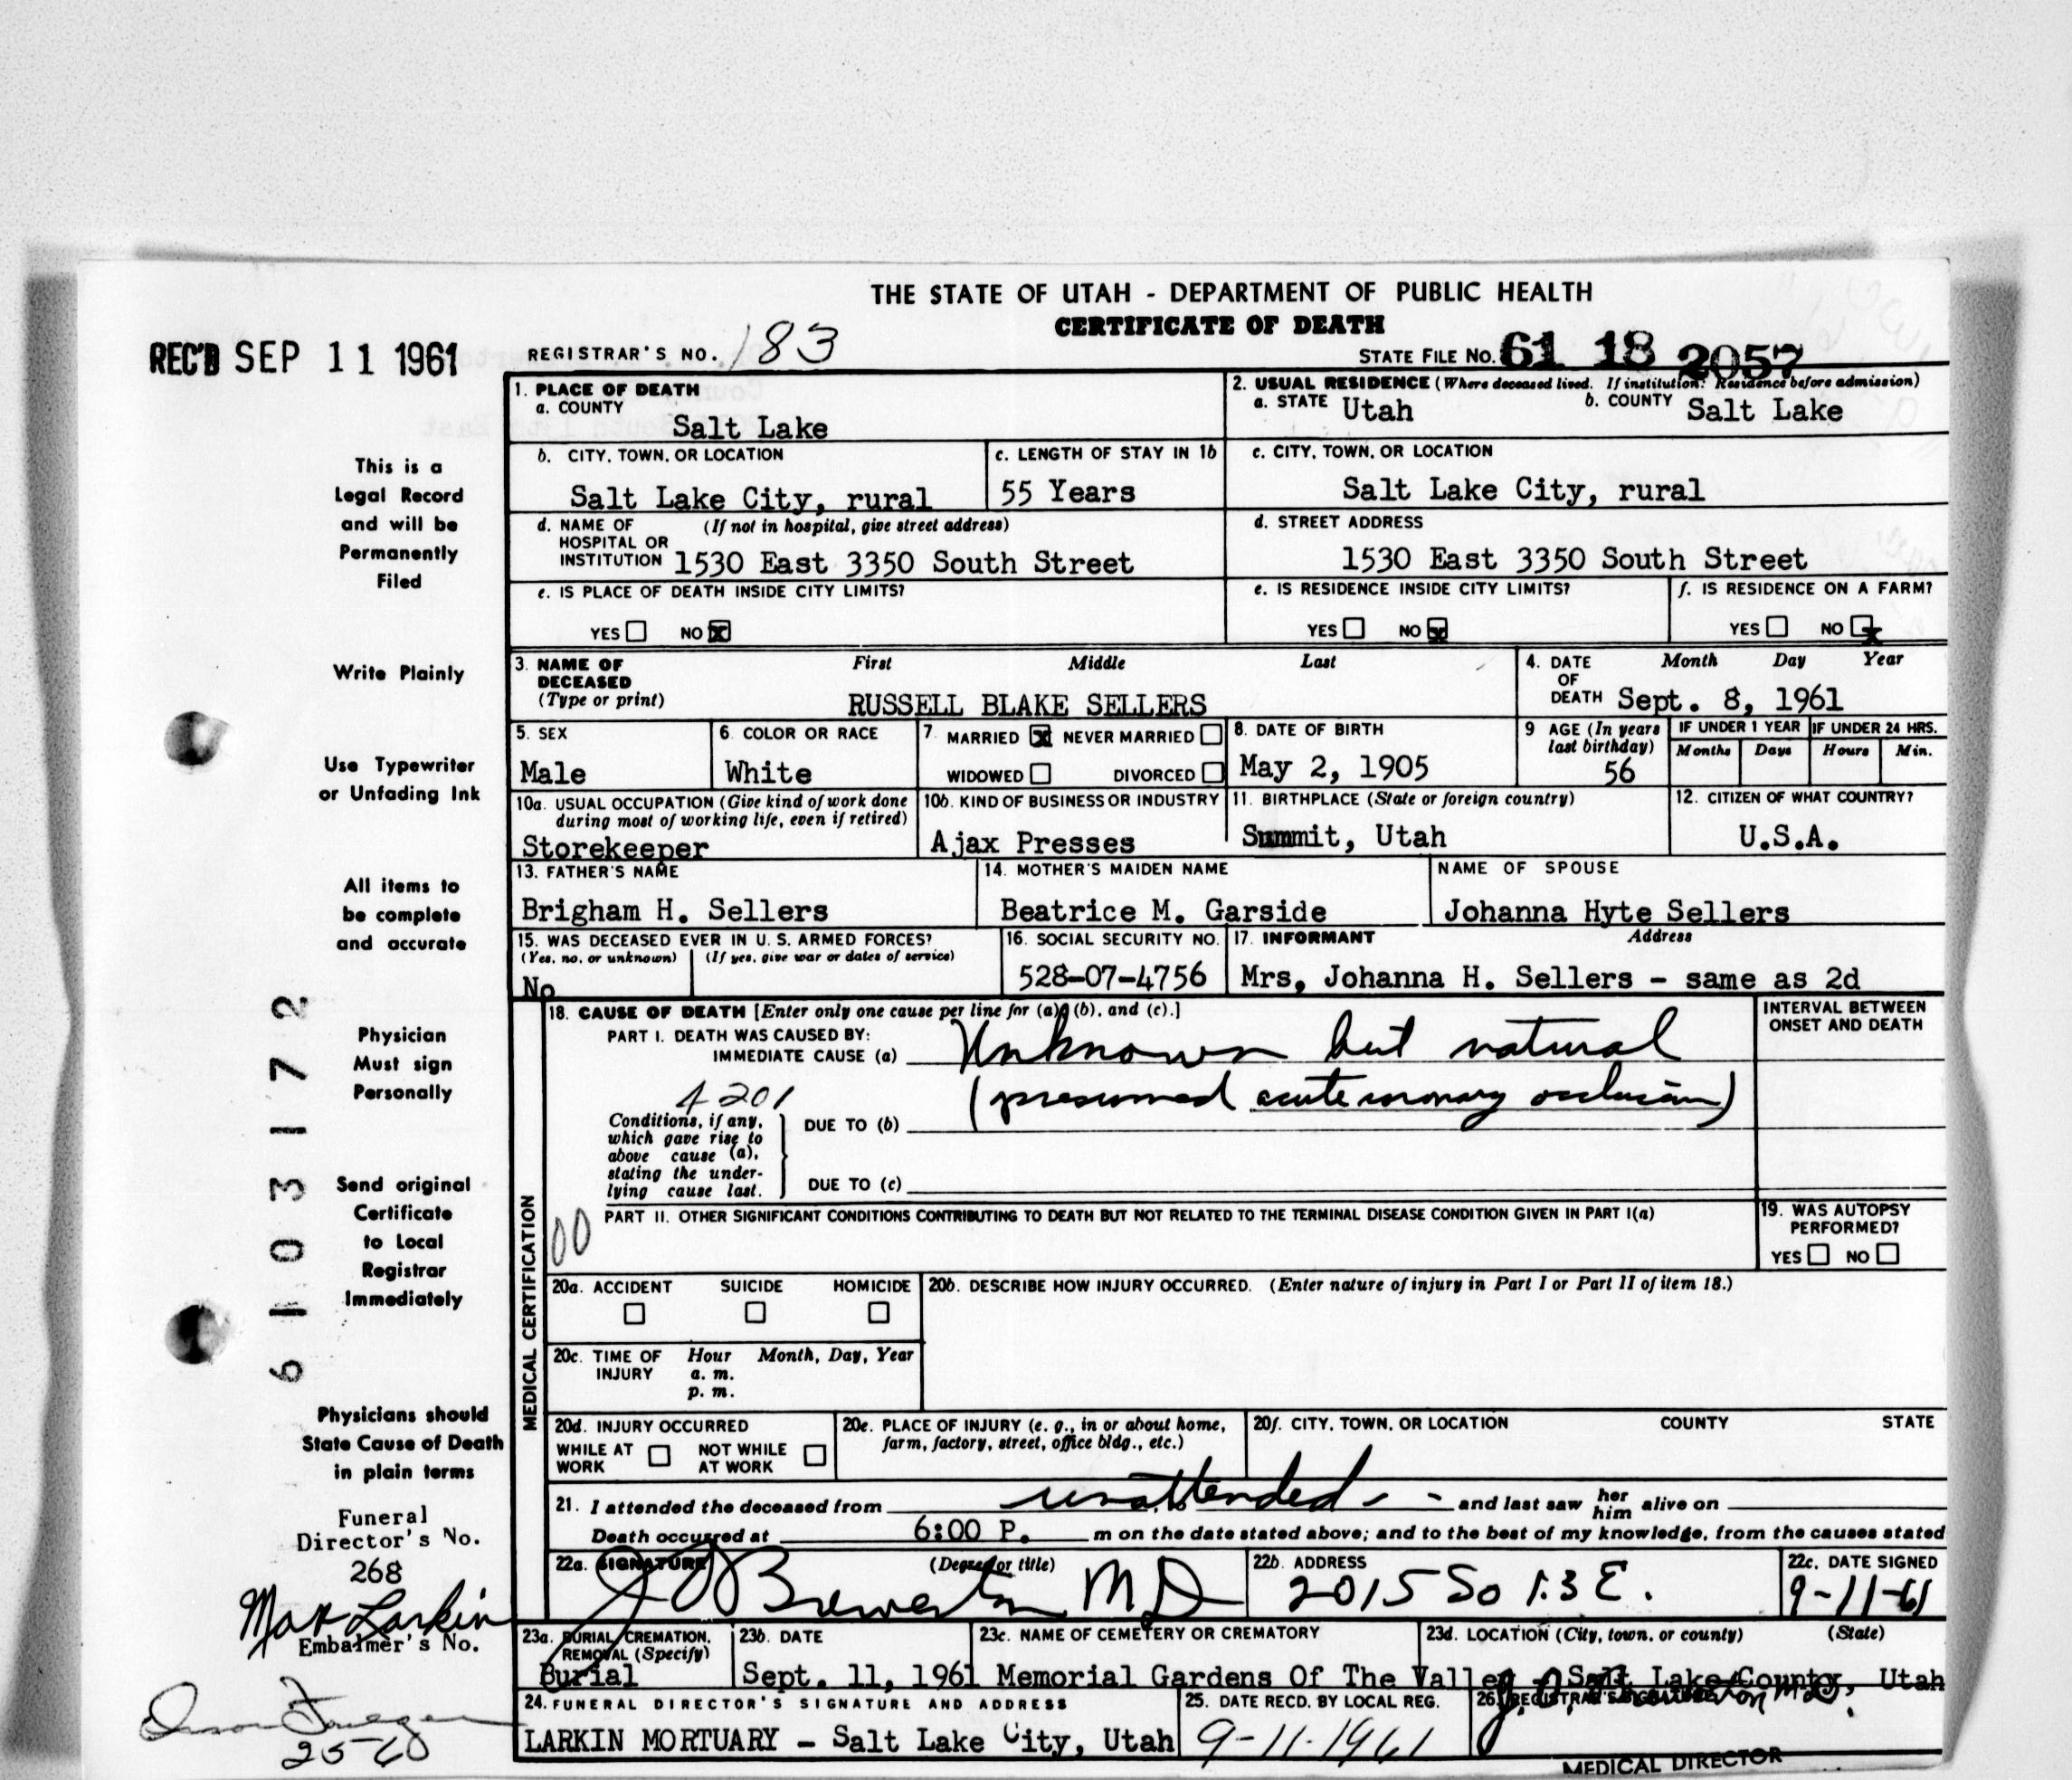 THE STATE OF UTAH - DEPARTMENT OF PUBLIC HEALTH
CERTIFICATE OF DEATH
REC'D SEP 11 1961
REGISTRAR'S NO. 183
STATE FILE NO. 61 18 2057
1. PLACE OF DEATH
a. COUNTY
Salt Lake
2. USUAL RESIDENCE (Where deceased lived. If institution: Residence before admission)
a. STATE Utah b. COUNTY Salt Lake
b. CITY, TOWN, OR LOCATION
Salt Lake City, rural
c. LENGTH OF STAY IN 1b
55 Years
c. CITY, TOWN, OR LOCATION
Salt Lake City, rural
d. NAME OF HOSPITAL OR INSTITUTION (If not in hospital, give street address)
1530 East 3350 South Street
d. STREET ADDRESS
1530 East 3350 South Street
e. IS PLACE OF DEATH INSIDE CITY LIMITS?
YES NO X
e. IS RESIDENCE INSIDE CITY LIMITS?
YES NO X
f. IS RESIDENCE ON A FARM?
YES NO X
3. NAME OF DECEASED (Type or print)
First Middle Last
RUSSELL BLAKE SELLERS
4. DATE OF DEATH
Month Day Year
Sept. 8, 1961
5. SEX
Male
6. COLOR OR RACE
White
7. MARRIED X NEVER MARRIED
WIDOWED DIVORCED
8. DATE OF BIRTH
May 2, 1905
9 AGE (In years last birthday)
56
IF UNDER 1 YEAR
Months Days
IF UNDER 24 HRS.
Hours Min.
10a. USUAL OCCUPATION (Give kind of work done during most of working life, even if retired)
Storekeeper
10b. KIND OF BUSINESS OR INDUSTRY
Ajax Presses
11. BIRTHPLACE (State or foreign country)
Summit, Utah
12. CITIZEN OF WHAT COUNTRY?
U.S.A.
13. FATHER'S NAME
Brigham H. Sellers
14. MOTHER'S MAIDEN NAME
Beatrice M. Garside
NAME OF SPOUSE
Johanna Hyte Sellers
15. WAS DECEASED EVER IN U. S. ARMED FORCES?
(Yes, no, or unknown) (If yes, give war or dates of service)
No
16. SOCIAL SECURITY NO.
528-07-4756
17. INFORMANT Address
Mrs, Johanna H. Sellers - same as 2d
18. CAUSE OF DEATH [Enter only one cause per line for (a), (b), and (c).]
PART I. DEATH WAS CAUSED BY:
IMMEDIATE CAUSE (a) Unknown but natural
(presumed acute coronary occlusion)
4201
Conditions, if any, which gave rise to above cause (a), stating the underlying cause last.
DUE TO (b)
DUE TO (c)
INTERVAL BETWEEN ONSET AND DEATH
00
PART II. OTHER SIGNIFICANT CONDITIONS CONTRIBUTING TO DEATH BUT NOT RELATED TO THE TERMINAL DISEASE CONDITION GIVEN IN PART I(a)
19. WAS AUTOPSY PERFORMED?
YES NO
MEDICAL CERTIFICATION
20a. ACCIDENT SUICIDE HOMICIDE
20b. DESCRIBE HOW INJURY OCCURRED. (Enter nature of injury in Part I or Part II of item 18.)
20c. TIME OF INJURY Hour Month, Day, Year
a. m.
p. m.
20d. INJURY OCCURRED
WHILE AT WORK NOT WHILE AT WORK
20e. PLACE OF INJURY (e. g., in or about home, farm, factory, street, office bldg., etc.)
20f. CITY, TOWN, OR LOCATION COUNTY STATE
21. I attended the deceased from unattended - - and last saw her him alive on
Death occurred at 6:00 P. m on the date stated above; and to the best of my knowledge, from the causes stated
22a. SIGNATURE (Degree or title)
J O Brewerton MD
22b. ADDRESS
2015 So 13 E.
22c. DATE SIGNED
9-11-61
23a. BURIAL, CREMATION, REMOVAL (Specify)
Burial
23b. DATE
Sept. 11, 1961
23c. NAME OF CEMETERY OR CREMATORY
Memorial Gardens Of The Valley
23d. LOCATION (City, town, or county) (State)
Salt Lake County, Utah
24. FUNERAL DIRECTOR'S SIGNATURE AND ADDRESS
LARKIN MORTUARY - Salt Lake City, Utah
25. DATE RECD. BY LOCAL REG.
9-11-1961
26. REGISTRAR'S SIGNATURE
MEDICAL DIRECTOR
This is a
Legal Record
and will be
Permanently
Filed
Write Plainly
Use Typewriter
or Unfading Ink
All items to
be complete
and accurate
Physician
Must sign
Personally
Send original
Certificate
to Local
Registrar
Immediately
Physicians should
State Cause of Death
in plain terms
Funeral
Director's No.
268
Max Larkin
Embalmer's No.
6103172